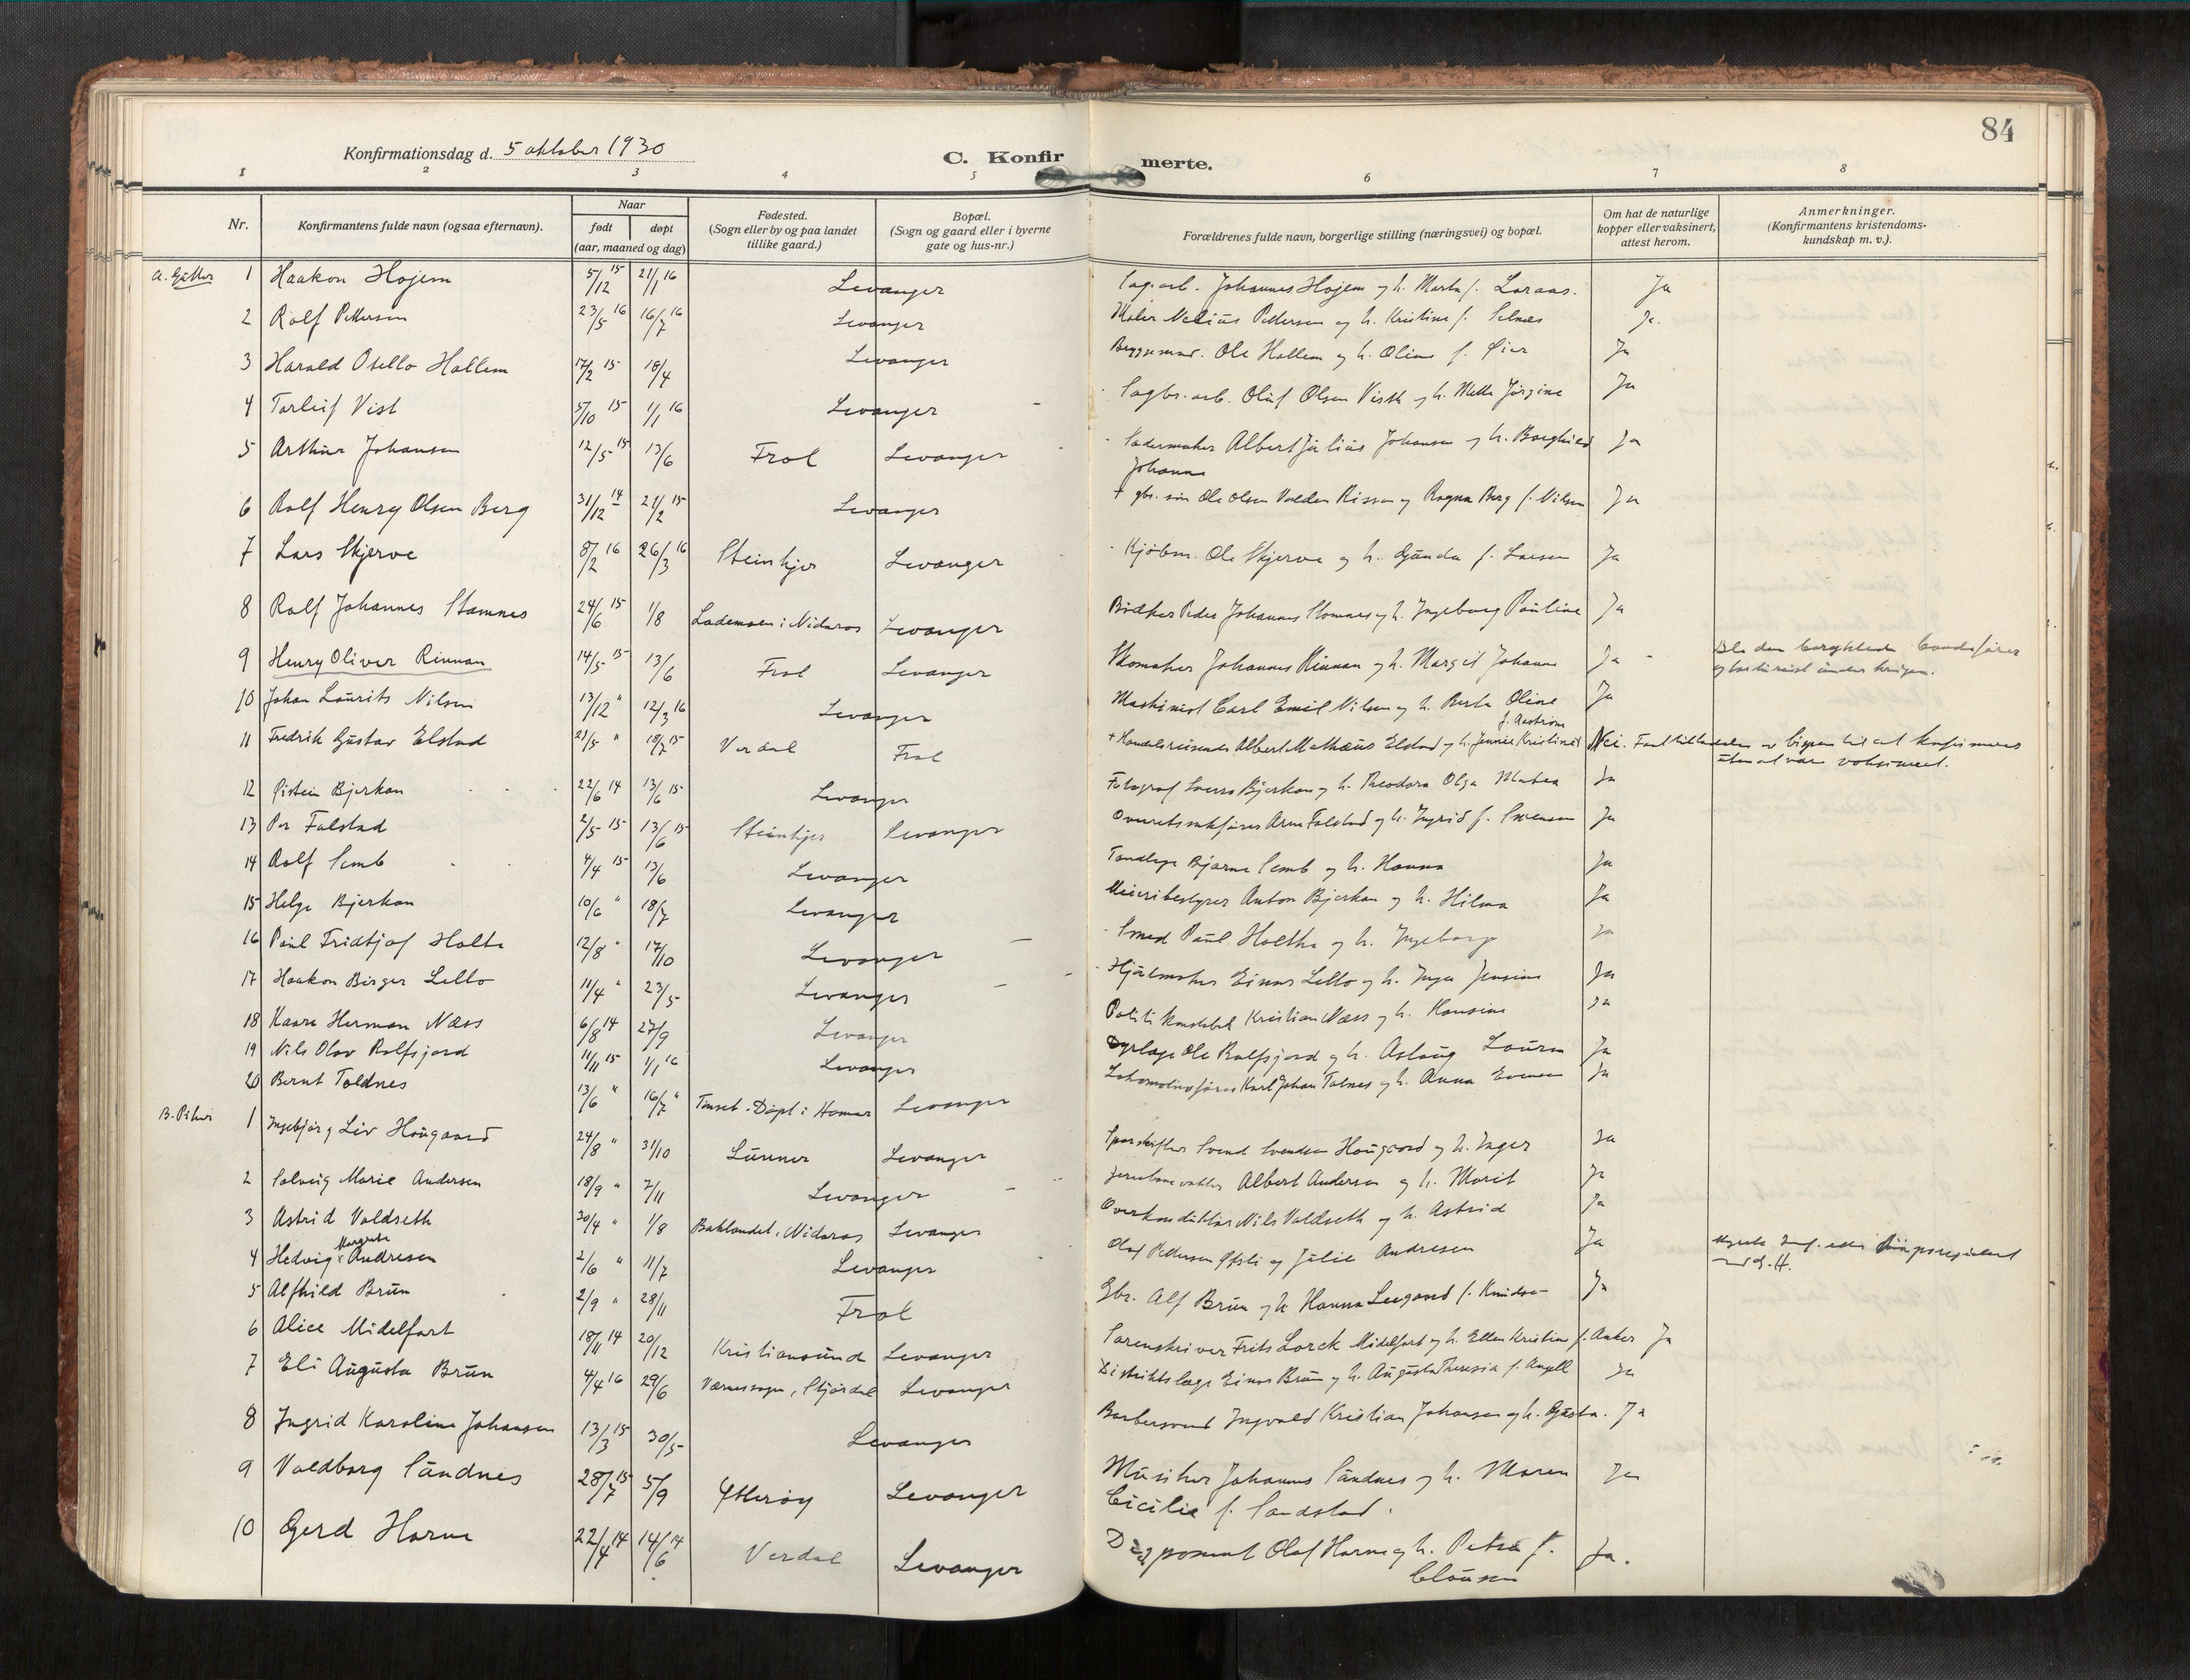 84
Konfirmationsdag d. 5 oktober 1930
C. Konfirmerte.
1 2 3 4 5 6 7 8
Nr.
Konfirmantens fulde navn (ogsaa efternavn).
Naar
født døpt
(aar, maaned og dag)
Fødested.
(Sogn eller by og paa landet
tillike gaard.)
Bopæl.
(Sogn og gaard eller i byerne
gate og hus-nr.)
Forældrenes fulde navn, borgerlige stilling (næringsvei) og bopæl.
Om hat de naturlige
kopper eller vaksinert,
attest herom.
Anmerkninger.
(Konfirmantens kristendoms-
kundskap m. v.).
A. Gutter 1 Haakon Hojem 5/12 15 21/1 16 Levanger Sag.arb. Johannes Hojem og h. Marta f. Laraas. Ja
2 Rolf Pettersen 23/5 16 16/7 16 Levanger Maler Nelius Pedersen og h. Kristine f. Selnæs Ja.
3 Harald Otello Hallem 17/2 15 18/4 Levanger Ole Hallem og h. Oline f. Ja
4 Torleif Vist 5/10 15 1/1 16 Levanger Sagbr.arb. Oluf Olsen Vist og h. Mette Jørgine Ja
5 Arthur Johansen 12/5 15 13/6 Frol Levanger Albert Julius Johansen og h. Borghild Ja
Johanne
6 Rolf Henry Olsen Berg 31/12 14 21/2 15 Levanger + gbr. søn Ole Olsen og Ragna Berg f. Nilsen Ja
7 Lars Skjerve 8/2 16 26/3 16 Steinkjer Levanger Kjøbm. Ole Skjerve og h. Gunda f. Larsen Ja
8 Rolf Johannes Stamnes 24/6 15 1/8 Lademoen i Nidaros Levanger Bødker Peder Johannes Stamnes og h. Ingeborg Pauline Ja
9 Henry Oliver Rinnan 14/5 15 13/6 Frol Levanger Skomaker Johannes Rinnan og h. Margit Johanne Ja Ble den beryktede bandefører
og torturist under krigen.
10 Johan Laurits Nilsen 13/12 " 12/3 16 Levanger Maskinist Carl Emil Nilsen og h. Berta Oline Ja
f. Aastrøm
11 Fredrik Gustav Elstad 23/5 " 18/7 15 Verdal Frol + Handelsreisende Albert Mathæus Elstad og h. Jennie Kristine Nei. Fant tilladelse av bispen til at konfirmeres
uten at være vaksineret.
12 Øistein Bjerkan 22/6 14 13/6 15 Levanger Fotograf Sverre Bjerkan og h. Theodora Olga Matea Ja
13 Per Falstad 2/5 15 13/6 15 Steinkjer Levanger Overretssakfører Arne Falstad og h. Ingrid f. Svensen Ja
14 Rolf Semb 4/4 15 13/6 Levanger Tandlege Bjarne Semb og h. Hanna Ja
15 Helge Bjerkan 10/6 " 18/7 Levanger Meieribestyrer Anton Bjerkan og h. Hilma Ja
16 Paul Fridtjof Holte 12/8 " 17/10 Levanger Smed Paul Holthe og h. Ingeborg Ja
17 Haakon Birger Lello 11/4 " 23/5 Levanger Hjulmaker Einar Lello og h. Inga Jensine Ja
18 Kaare Herman Næss 6/8 14 27/9 Levanger Politikonstabel Kristian Næss og h. Hansine Ja
19 Nils Olav Rolfsjord 11/11 15 1/1 16 Levanger Dyrlæge Ole Rolfsjord og h. Aslaug Laura Ja
20 Bernt Toldnes 13/6 " 16/7 " Tynset. Døpt i Hamar Levanger Lokomotivfører Karl Johan Tolnes og h. Anna Evensen Ja
B. Piker 1 Ingebjørg Liv Haugaard 24/8 " 31/10 Lunner Levanger Sporskifter Svend Svendsen Haugaard og h. Inger Ja
2 Solveig Marie Andersen 18/9 " 7/11 Levanger Jernbanevokter Albert Andersen og h. Marit Ja
3 Astrid Valdseth 30/4 " 1/8 Baklandet, Nidaros Levanger Overkonduktør Nils Valdseth og h. Astrid Ja
4 Hedvig Margrete Andresen 2/6 " 11/7 Levanger Olaf Pettersen og Julie Andresen Ja
5 Alfhild Brun 2/9 " 28/11 Frol Gbr. Alf Brun og h. Hanna Leegaard f. Knudsen Ja
6 Alice Midelfart 18/11 14 20/12 Kristiansund Levanger Sorenskriver Frits Lorck Midelfart og h. Ellen Kristine f. Anker Ja
7 Eli Augusta Brun 4/4 16 29/6 Værnessogn, Stjørdal Levanger Distriktslæge Einar Brun og h. Augusta Theresia f. Angell Ja
8 Ingrid Karoline Johansen 13/3 15 30/5 Levanger Barbersvend Ingvald Kristian Johansen og h. Gusta. Ja
9 Valdborg Sandnes 28/7 15 5/9 Ytterøy Levanger Musiker Johannes Sandnes og h. Maren Ja
Cicilie f. Sandstad.
10 Gerd Harne 22/4 14 14/6 14 Verdal Levanger Disponent Olaf Harne og h. Petra f. Ja.
Clausen